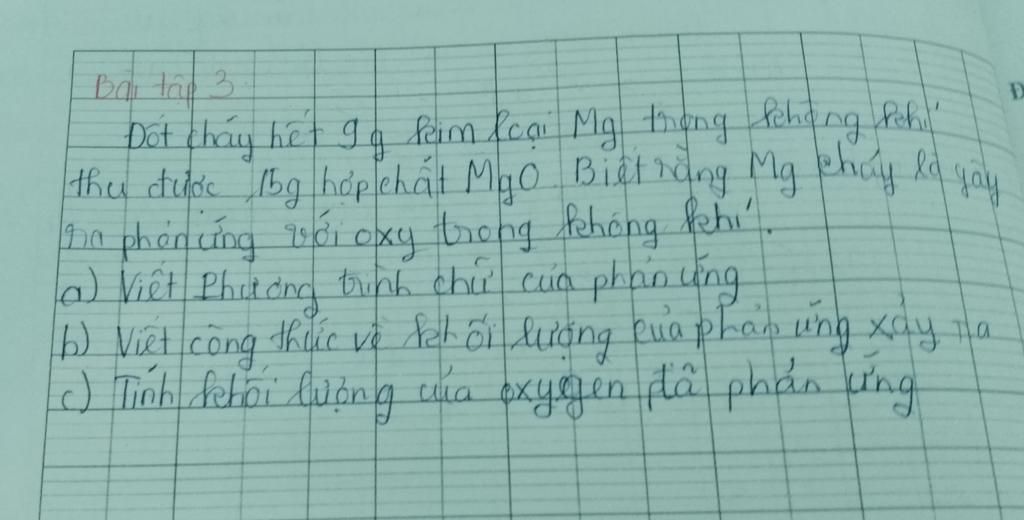 Bài tập 3
Đốt cháy hết 9g kim loại Mg trong không khí
thu được 15g hợp chất MgO Biết rằng Mg cháy là xảy
ra phản ứng với oxy trong không khí.
a) Viết Phương trình chữ của phản ứng
b) Viết công thức về khối lượng của phản ứng xảy ra
c) Tính khối lượng của oxygen đã phản ứng